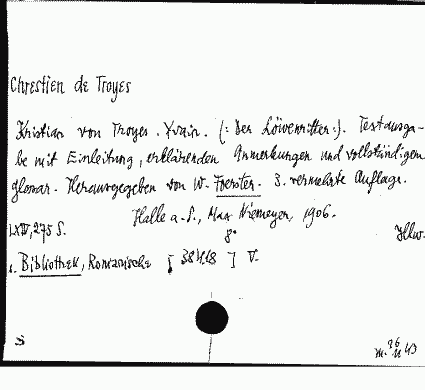 Chrestien de Troyes
Kristian von Troyes. Yvain. (: Der Löwenritter:). Textausga-
be mit Einleitung, erklärenden Anmerkungen und vollständigem
Glossar. Herausgegeben von W. Foerster. 3. vermehrte Auflage.
Halle a. S., Max Niemeyer, 1906.
275 S. 8°
s. Bibliothek, Romanische [ ] V.
S